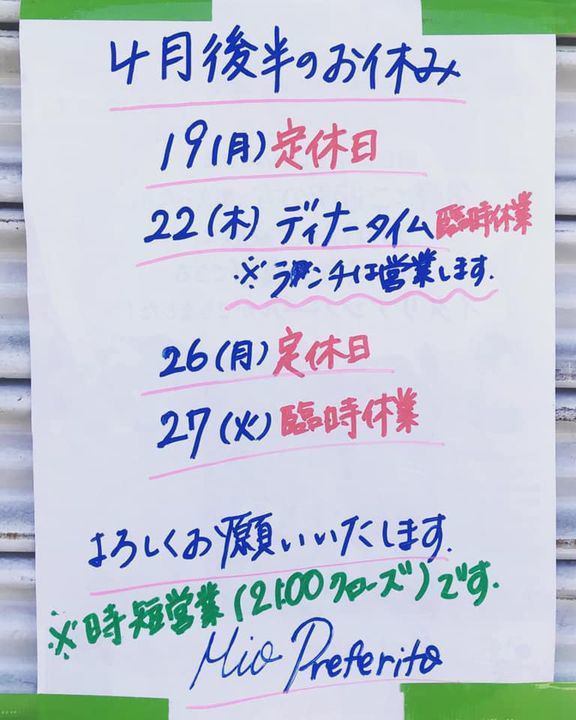 4月後半のお休み
19(月)定休日
22(木) ディナータイム臨時休業
※ランチは営業します.
26(月)定休日
27(火)臨時休業
よろしくお願いいたします.
※時短営業(21:00クローズ)です.
Mio Preferito